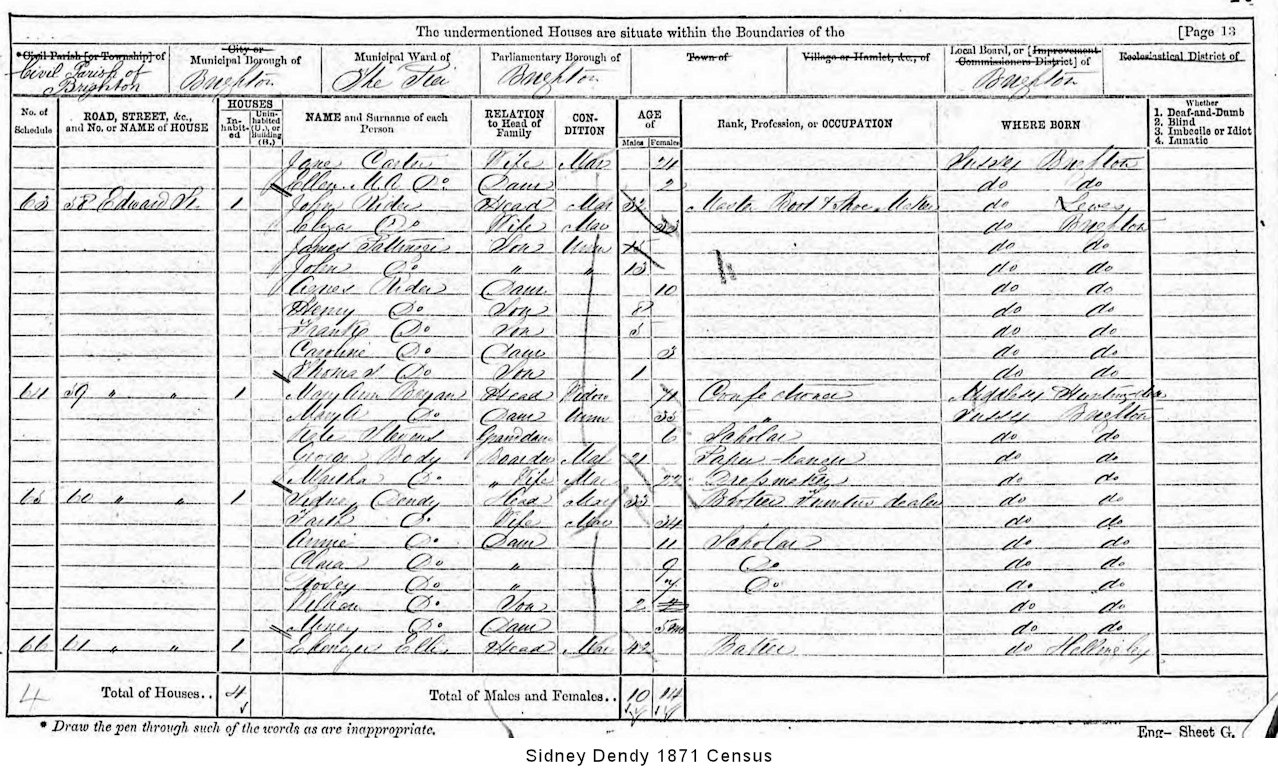 The undermentioned Houses are situate within the Boundaries of the [Page 13
*Civil Parish [or Township] of City or Municipal Borough of Municipal Ward of Parliamentary Borough of Town of Village or Hamlet, &c., of Local Board, or [Improvement Commissioners District] of Ecclesiastical District of
Civil Parish of Brighton Brighton The Brighton Brighton
No. of Schedule ROAD, STREET, &c., and No. or NAME of HOUSE HOUSES Inhabited Uninhabited (U.), or Building (B.) NAME and Surname of each Person RELATION to Head of Family CONDITION AGE of Males Females Rank, Profession, or OCCUPATION WHERE BORN Whether 1. Deaf-and-Dumb 2. Blind 3. Imbecile or Idiot 4. Lunatic
Jane Carter Wife Mar 24 Sussex Brighton
Ellen M.A. Do Daur 2 do do
63 58 Edward St. 1 John Rider Head Mar 32 Master Boot & Shoe Maker do Lewes
Eliza Do Wife Mar 33 do Brighton
James Son Unm 15 do do
John Do " " 13 do do
Agnes Rider Daur 10 do do
Henry Do Son 8 do do
Frank Do Son 5 do do
Caroline Do Daur 3 do do
Thomas Do Son 1 do do
64 59 " " 1 Mary Ann Head Widow 71 Confectioner
Mary A Do Daur Unm 35 " Sussex Brighton
Kate Stevens Grandaur 6 Scholar do do
George Body Boarder Mar 21 Paper hanger do do
Martha Do " Wife Mar 22 Dressmaker do do
65 60 " " 1 Sidney Dendy Head Mar 33 Broker Furniture dealer do do
Do Wife Mar 34 do do
Annie Do Daur 11 Scholar do do
Do " 9 Do do do
Do " 7 Do do do
William Do Son 2 do do
Do Daur 5 mo do do
66 61 " " 1 Ebenezer Ellis Head Mar 42 do Hellingley
4 Total of Houses.. 4 Total of Males and Females.. 10 14
* Draw the pen through such of the words as are inappropriate. Eng- Sheet G.
Sidney Dendy 1871 Census